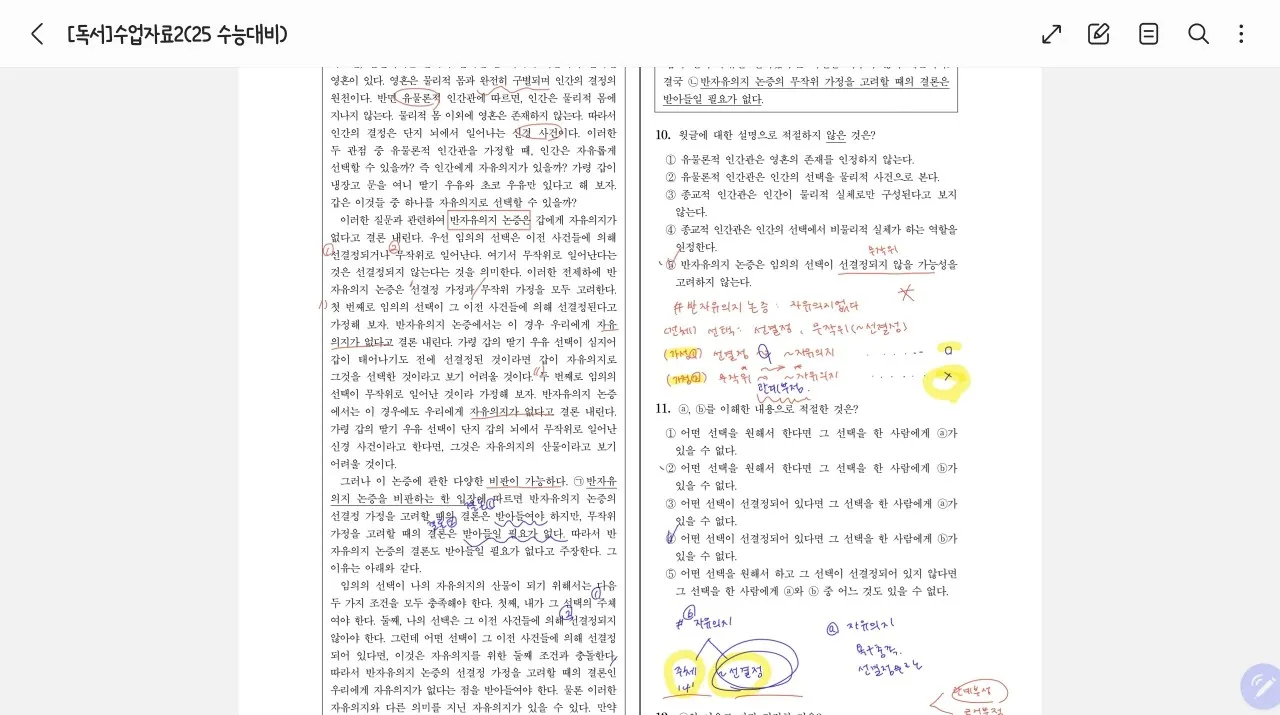 [독서]수업자료2(25 수능대비)
영혼이 있다. 영혼은 물리적 몸과 완전히 구별되며 인간의 결정의
원천이다. 반면 유물론적 인간관에 따르면, 인간은 물리적 몸에
지나지 않는다. 물리적 몸 이외에 영혼은 존재하지 않는다. 따라서
인간의 결정은 단지 뇌에서 일어나는 신경 사건이다. 이러한
두 관점 중 유물론적 인간관을 가정할 때, 인간은 자유롭게
선택할 수 있을까? 즉 인간에게 자유의지가 있을까? 가령 갑이
냉장고 문을 여니 딸기 우유와 초코 우유만 있다고 해 보자.
갑은 이것들 중 하나를 자유의지로 선택할 수 있을까?
이러한 질문과 관련하여 반자유의지 논증은 갑에게 자유의지가
없다고 결론 내린다. 우선 임의의 선택은 이전 사건들에 의해
① ②
선결정되거나 무작위로 일어난다. 여기서 무작위로 일어난다는
것은 선결정되지 않는다는 것을 의미한다. 이러한 전제하에 반
자유의지 논증은 선결정 가정과 무작위 가정을 모두 고려한다.
첫 번째로 임의의 선택이 그 이전 사건들에 의해 선결정된다고
가정해 보자. 반자유의지 논증에서는 이 경우 우리에게 자유
의지가 없다고 결론 내린다. 가령 갑의 딸기 우유 선택이 심지어
갑이 태어나기도 전에 선결정된 것이라면 갑이 자유의지로
그것을 선택한 것이라고 보기 어려울 것이다. 두 번째로 임의의
선택이 무작위로 일어난 것이라 가정해 보자. 반자유의지 논증
에서는 이 경우에도 우리에게 자유의지가 없다고 결론 내린다.
가령 갑의 딸기 우유 선택이 단지 갑의 뇌에서 무작위로 일어난
신경 사건이라고 한다면, 그것은 자유의지의 산물이라고 보기
어려울 것이다.
그러나 이 논증에 관한 다양한 비판이 가능하다. ㉠ 반자유
의지 논증을 비판하는 한 입장에 따르면 반자유의지 논증의
결론①
선결정 가정을 고려할 때의 결론은 받아들여야 하지만, 무작위
결론②
가정을 고려할 때의 결론은 받아들일 필요가 없다. 따라서 반
자유의지 논증의 결론도 받아들일 필요가 없다고 주장한다. 그
이유는 아래와 같다.
임의의 선택이 나의 자유의지의 산물이 되기 위해서는 다음
두 가지 조건을 모두 충족해야 한다. 첫째, 내가 그 선택의 주체
①
여야 한다. 둘째, 나의 선택은 그 이전 사건들에 의해 선결정되지
②
않아야 한다. 그런데 어떤 선택이 그 이전 사건들에 의해 선결정
되어 있다면, 이것은 자유의지를 위한 둘째 조건과 충돌한다.
따라서 반자유의지 논증의 선결정 가정을 고려할 때의 결론인
우리에게 자유의지가 없다는 점을 받아들여야 한다. 물론 이러한
자유의지와 다른 의미를 지닌 자유의지가 있을 수 있다. 만약
결국 ㉡ 반자유의지 논증의 무작위 가정을 고려할 때의 결론은
받아들일 필요가 없다.
10. 윗글에 대한 설명으로 적절하지 않은 것은?
① 유물론적 인간관은 영혼의 존재를 인정하지 않는다.
② 유물론적 인간관은 인간의 선택을 물리적 사건으로 본다.
③ 종교적 인간관은 인간이 물리적 실체로만 구성된다고 보지
않는다.
④ 종교적 인간관은 인간의 선택에서 비물리적 실체가 하는 역할을
인정한다.
무작위
⑤ 반자유의지 논증은 임의의 선택이 선결정되지 않을 가능성을
고려하지 않는다.
# 반자유의지 논증 : 자유의지없다
(전제) 선택: 선결정, 무작위(~선결정)
(가정①) 선결정 → ~자유의지 ...... o
(가정②) 무작위 → ~자유의지 ...... x
관계부정.
11. ⓐ, ⓑ를 이해한 내용으로 적절한 것은?
① 어떤 선택을 원해서 한다면 그 선택을 한 사람에게 ⓐ가
있을 수 없다.
② 어떤 선택을 원해서 한다면 그 선택을 한 사람에게 ⓑ가
있을 수 없다.
③ 어떤 선택이 선결정되어 있다면 그 선택을 한 사람에게 ⓐ가
있을 수 없다.
④ 어떤 선택이 선결정되어 있다면 그 선택을 한 사람에게 ⓑ가
있을 수 없다.
⑤ 어떤 선택을 원해서 하고 그 선택이 선결정되어 있지 않다면
그 선택을 한 사람에게 ⓐ와 ⓑ 중 어느 것도 있을 수 없다.
ⓑ
# 자유의지
주체 ~선결정
나
ⓐ 자유의지
욕구충족
관계부정
근거부정